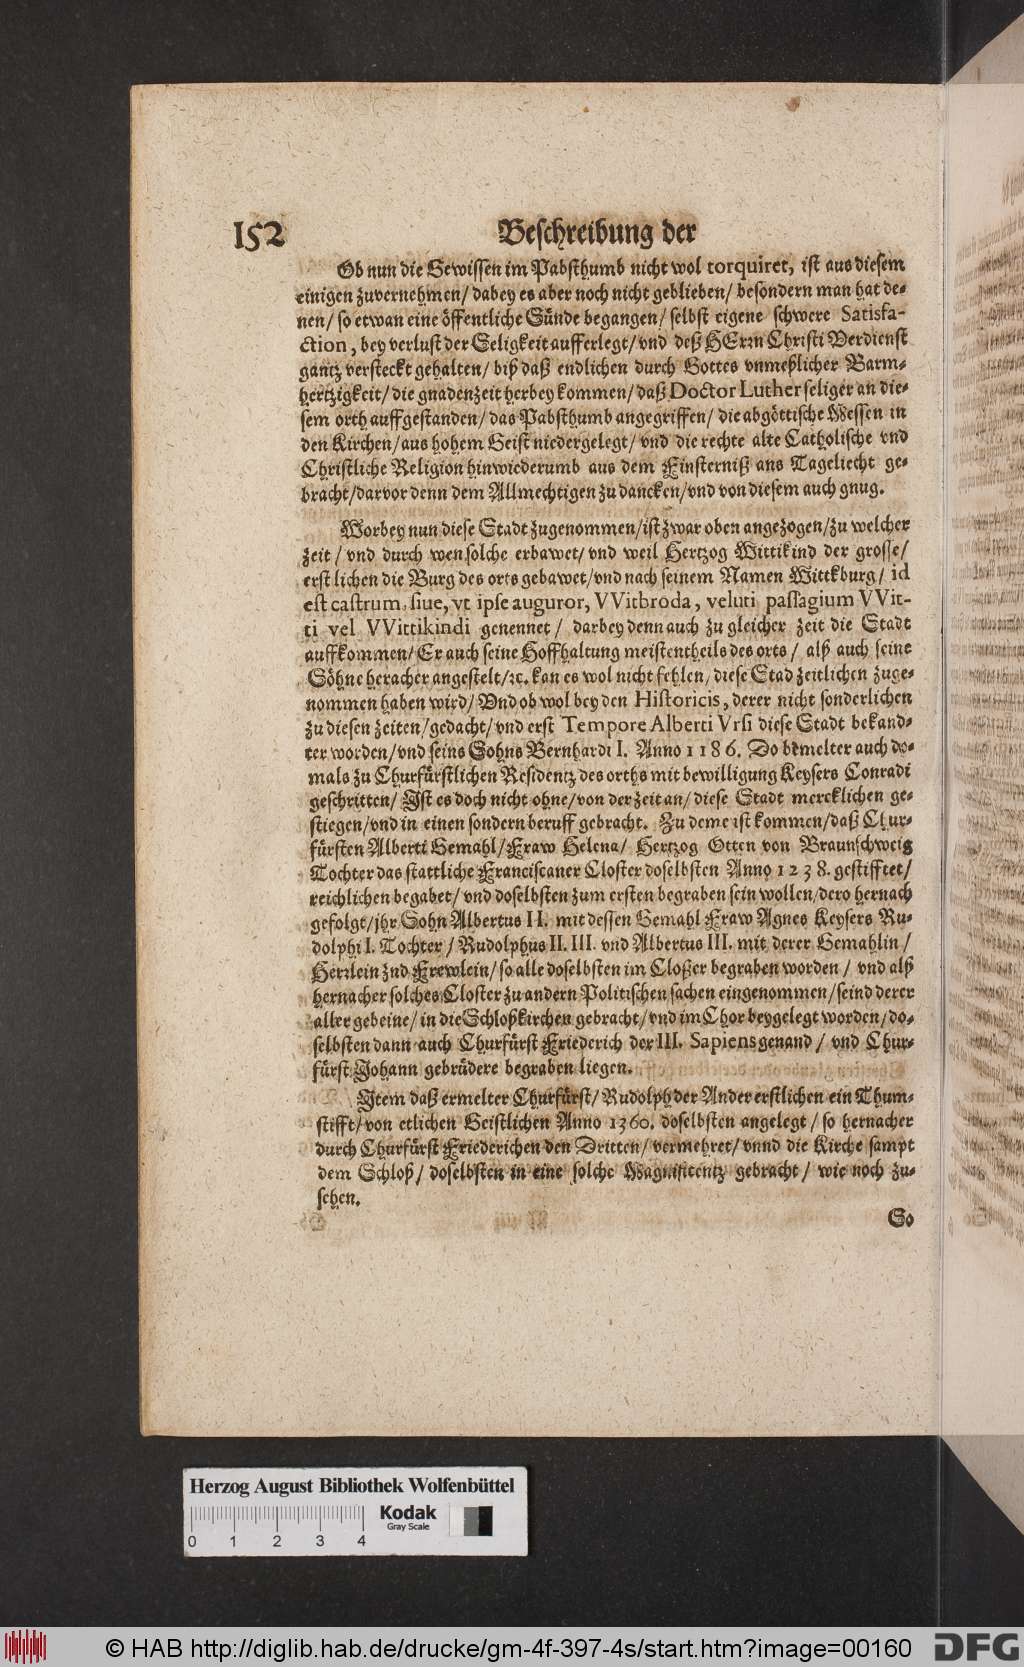 152 Beschreibung der
Ob nun die Gewissen im Pabsthumb nicht wol torquiret, ist aus diesem
einigen zuvernehmen/ dabey es aber noch nicht geblieben/ besondern man hat de-
nen/ so etwan eine öffentliche Sünde begangen/ selbst eigene schwere Satisfa-
ction, bey verlust der Seligkeit aufferlegt/ vnd deß HErrn Christi Verdienst
gantz versteckt gehalten/ biß daß endlichen durch Gottes vnmeßlicher Barm-
hertzigkeit/ die gnadenzeit herbey kommen/ daß Doctor Luther seliger an die-
sem orth auffgestanden/ das Pabsthumb angegriffen/ die abgöttische Wessen in
den Kirchen/ aus hohem Geist niedergelegt/ vnd die rechte alte Catholische vnd
Christliche Religion hinwiederumb aus dem Finsterniß ans Tageliecht ge-
bracht/ darvor denn dem Allmechtigen zu dancken/ vnd von diesem auch gnug.
Worbey nun diese Stadt zugenommen/ ist zwar oben angezogen/ zu welcher
zeit/ vnd durch wen solche erbawet/ vnd weil Hertzog Wittikind der grosse/
erstlichen die Burg des orts gebawet/ vnd nach seinem Namen Wittkburg/ id
est castrum, siue, vt ipse auguror, VVitbroda, veluti passagium VVit-
ti vel VVittikindi genennet/ darbey denn auch zu gleicher zeit die Stadt
auffkommen/ Er auch seine Hoffhaltung meistentheils des orts/ alß auch seine
Söhne heracher angestelt/ꝛc. kan es wol nicht fehlen/ diese Stad zeitlichen zuge-
nommen haben wird/ Vnd ob wol bey den Historicis, derer nicht sonderlichen
zu diesen zeiten/ gedacht/ vnd erst Tempore Alberti Vrsi diese Stadt bekand-
ter worden/ vnd seins Sohns Bernhardi I. Anno 1186. Do bemelter auch do-
mals zu Churfürstlichen Residentz des orths mit bewilligung Keysers Conradi
geschritten/ Ist es doch nicht ohne/ von der zeit an/ diese Stadt mercklichen ge-
stiegen/ vnd in einen sondern beruff gebracht. Zu deme ist kommen/ daß Chur-
fürsten Alberti Gemahl/ Fraw Helena/ Hertzog Otten von Braunschweig
Tochter das stattliche Franciscaner Closter doselbsten Anno 1238. gestifftet/
reichlichen begabet/ vnd doselbsten zum ersten begraben sein wollen/ dero hernach
gefolgt/ jhr Sohn Albertus II. mit dessen Gemahl Fraw Agnes Keysers Ru-
dolphi I. Tochter/ Rudolphus II. III. vnd Albertus III. mit derer Gemahlin/
Herrlein znd Frewlein/ so alle doselbsten im Closter begraben worden/ vnd alß
hernacher solches Closter zu andern Politischen sachen eingenommen/ seind derer
aller gebeine/ in die Schloßkirchen gebracht/ vnd im Chor beygelegt worden/ do-
selbsten dann auch Churfürst Friederich der III. Sapiens genand/ vnd Chur-
fürst Johann gebrüdere begraben liegen.
Item daß ermelter Churfürst/ Rudolph der Ander erstlichen ein Thum-
stifft/ von etlichen Geistlichen Anno 1360. doselbsten angelegt/ so hernacher
durch Churfürst Friederichen den Dritten/ vermehret/ vnnd die Kirche sampt
dem Schloß/ doselbsten in eine solche Magnifitentz gebracht/ wie noch zu-
sehen.
So
Herzog August Bibliothek Wolfenbüttel
Kodak
Gray Scale
0 1 2 3 4
© HAB http://diglib.hab.de/drucke/gm-4f-397-4s/start.htm?image=00160 DFG